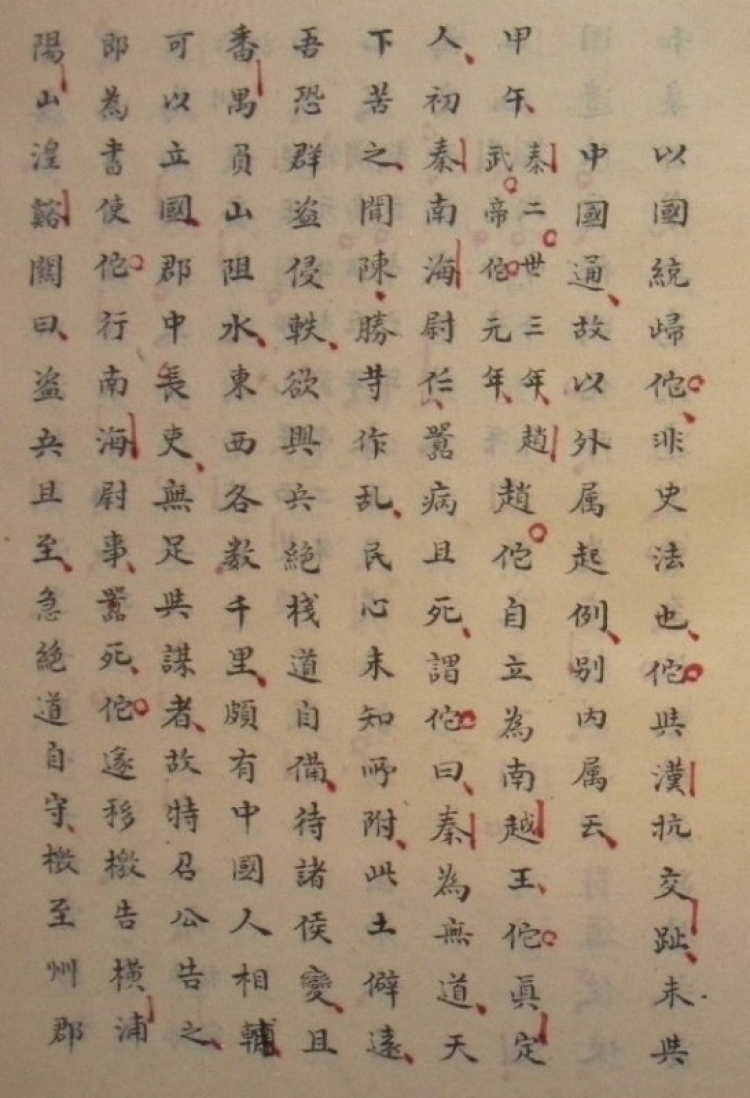 以國統歸佗非史法也佗與漢抗交趾未與
中國通故以外属起例别内属云
甲午秦二世三年趙武帝佗元年趙佗自立為南越王佗眞定
人初秦南海尉任嚣病且死謂佗曰秦為無道天
下苦之聞陳勝等作乱民心未知所附此土僻遠
吾恐群盗侵軼欲興兵絶棧道自備待諸侯變且
番禺負山阻水東西各数千里頗有中國人相輔
可以立國郡中長吏無足與謀者故特召公告之
即為書使佗行南海尉事嚣死佗遂移檄告横浦
陽山湟谿關曰盗兵且至急絶道自守檄至州郡